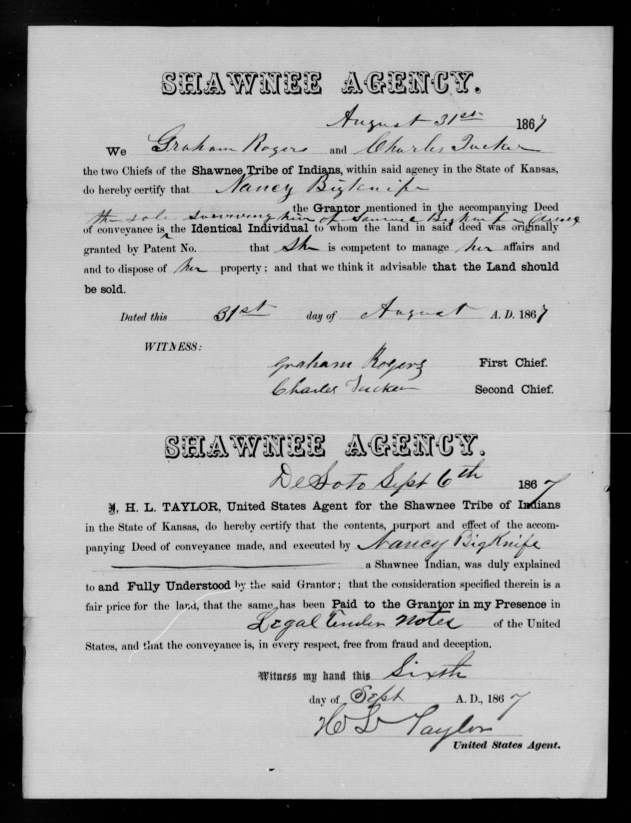 SHAWNEE AGENCY.
August 31st 1867
We Graham Rogers and Charles Tucker
the two Chiefs of the Shawnee Tribe of Indians, within said agency in the State of Kansas,
do hereby certify that Nancy Bigknife
the Grantor mentioned in the accompanying Deed
the sole surviving heir of Samuel Bigknife
of conveyance is the Identical Individual to whom the land in said deed was originally
granted by Patent No. that She is competent to manage her affairs and
and to dispose of her property; and that we think it advisable that the Land should
be sold.
Dated this 31st day of August A. D. 1867
WITNESS:
Graham Rogers First Chief.
Charles Tucker Second Chief.
SHAWNEE AGENCY.
DeSoto Sept 6th 1867
I, H. L. TAYLOR, United States Agent for the Shawnee Tribe of Indians
in the State of Kansas, do hereby certify that the contents, purport and effect of the accom-
panying Deed of conveyance made, and executed by Nancy BigKnife
a Shawnee Indian, was duly explained
to and Fully Understood by the said Grantor; that the consideration specified therein is a
fair price for the land, that the same has been Paid to the Grantor in my Presence in
Legal Tender Notes of the United
States, and that the conveyance is, in every respect, free from fraud and deception.
Witness my hand this Sixth
day of Sept A. D., 1867
H L Taylor
United States Agent.